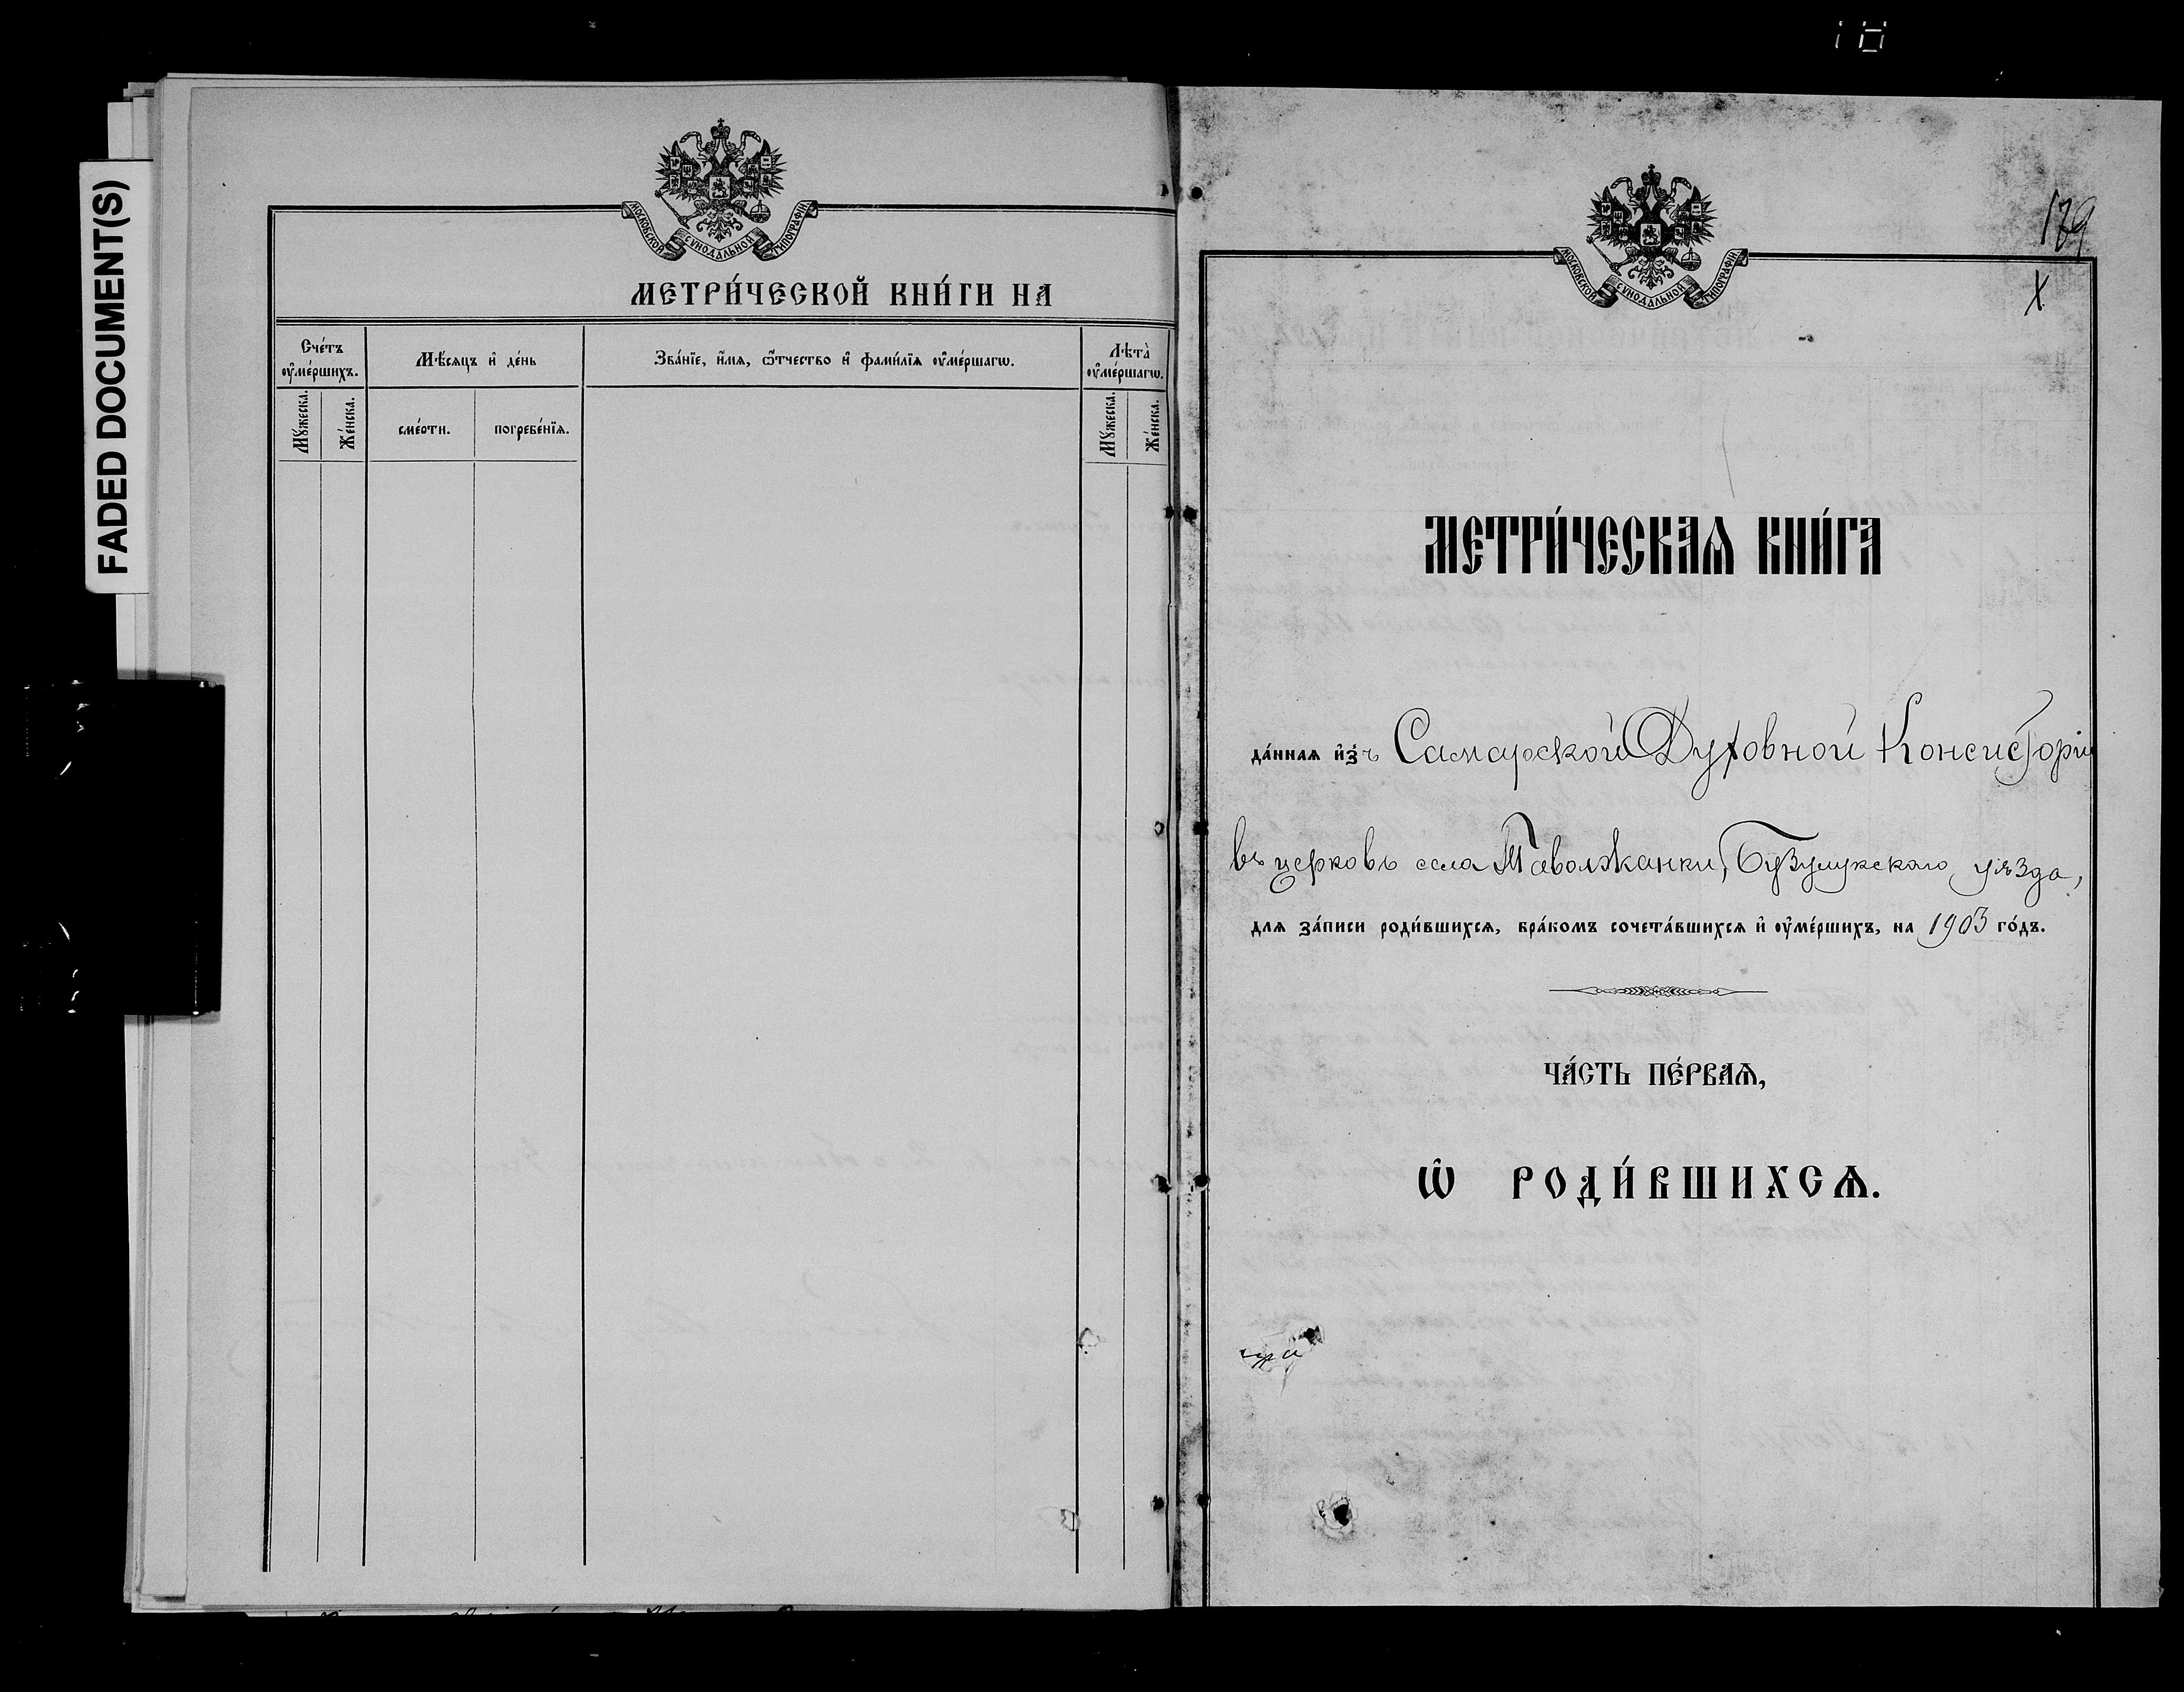 FADED DOCUMENT(S)
МОСКОВСКОЙ СѴНОДАЛЬНОЙ ТИПОГРАФІИ
МЕТРИ́ЧЕСКОЙ КНИ́ГИ НА
Сче́тъ ᲂу҆ме́ршихъ.
Мѣ́сяцъ и҆ де́нь
Зва́нїе, и҆́мя, ѻ҆́тчество и҆ фами́лїя ᲂу҆ме́ршагѡ.
Лѣта̀ ᲂу҆ме́ршагѡ.
Мꙋ́жеска.
Же́нска.
сме́рти.
погребе́нїѧ.
Мꙋ́жеска.
Же́нска.
179
X
МОСКОВСКОЙ СѴНОДАЛЬНОЙ ТИПОГРАФІИ
МЕТРИ́ЧЕСКАѦ КНИ́ГА
да́ннаѧ и҆зъ Самарской Духовной Консисторіи
въ церковь села Таволжанки, Бузулукскаго уѣзда,
для за́писи роди́вшихсѧ, бра́комъ сочета́вшихсѧ и҆ ᲂу҆ме́ршихъ, на 1903 го́дъ.
ЧА́СТЬ ПЕ́РВАѦ,
Ѡ҆ РОДИ́ВШИХСѦ.